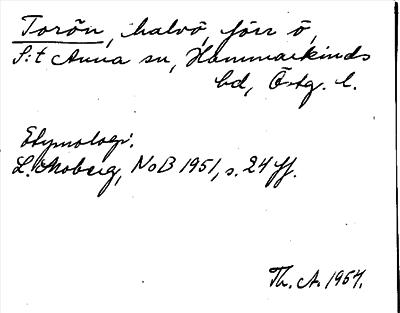 Torön, halvö, förr ö,
S:t Anna sn, Hammarkinds
hd, Östg. l.
Etymologi.
L. Moberg, NoB 1951, s. 24 ff.
Th. A. 1957.